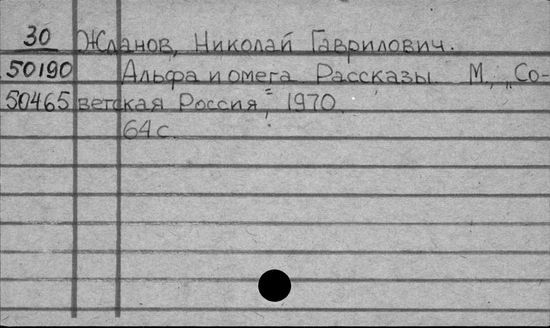 30 Жданов, Николай Гаврилович.
50190 Альфа и омега Рассказы. М., „Со-
50465 ветская Россия", 1970.
64 с.